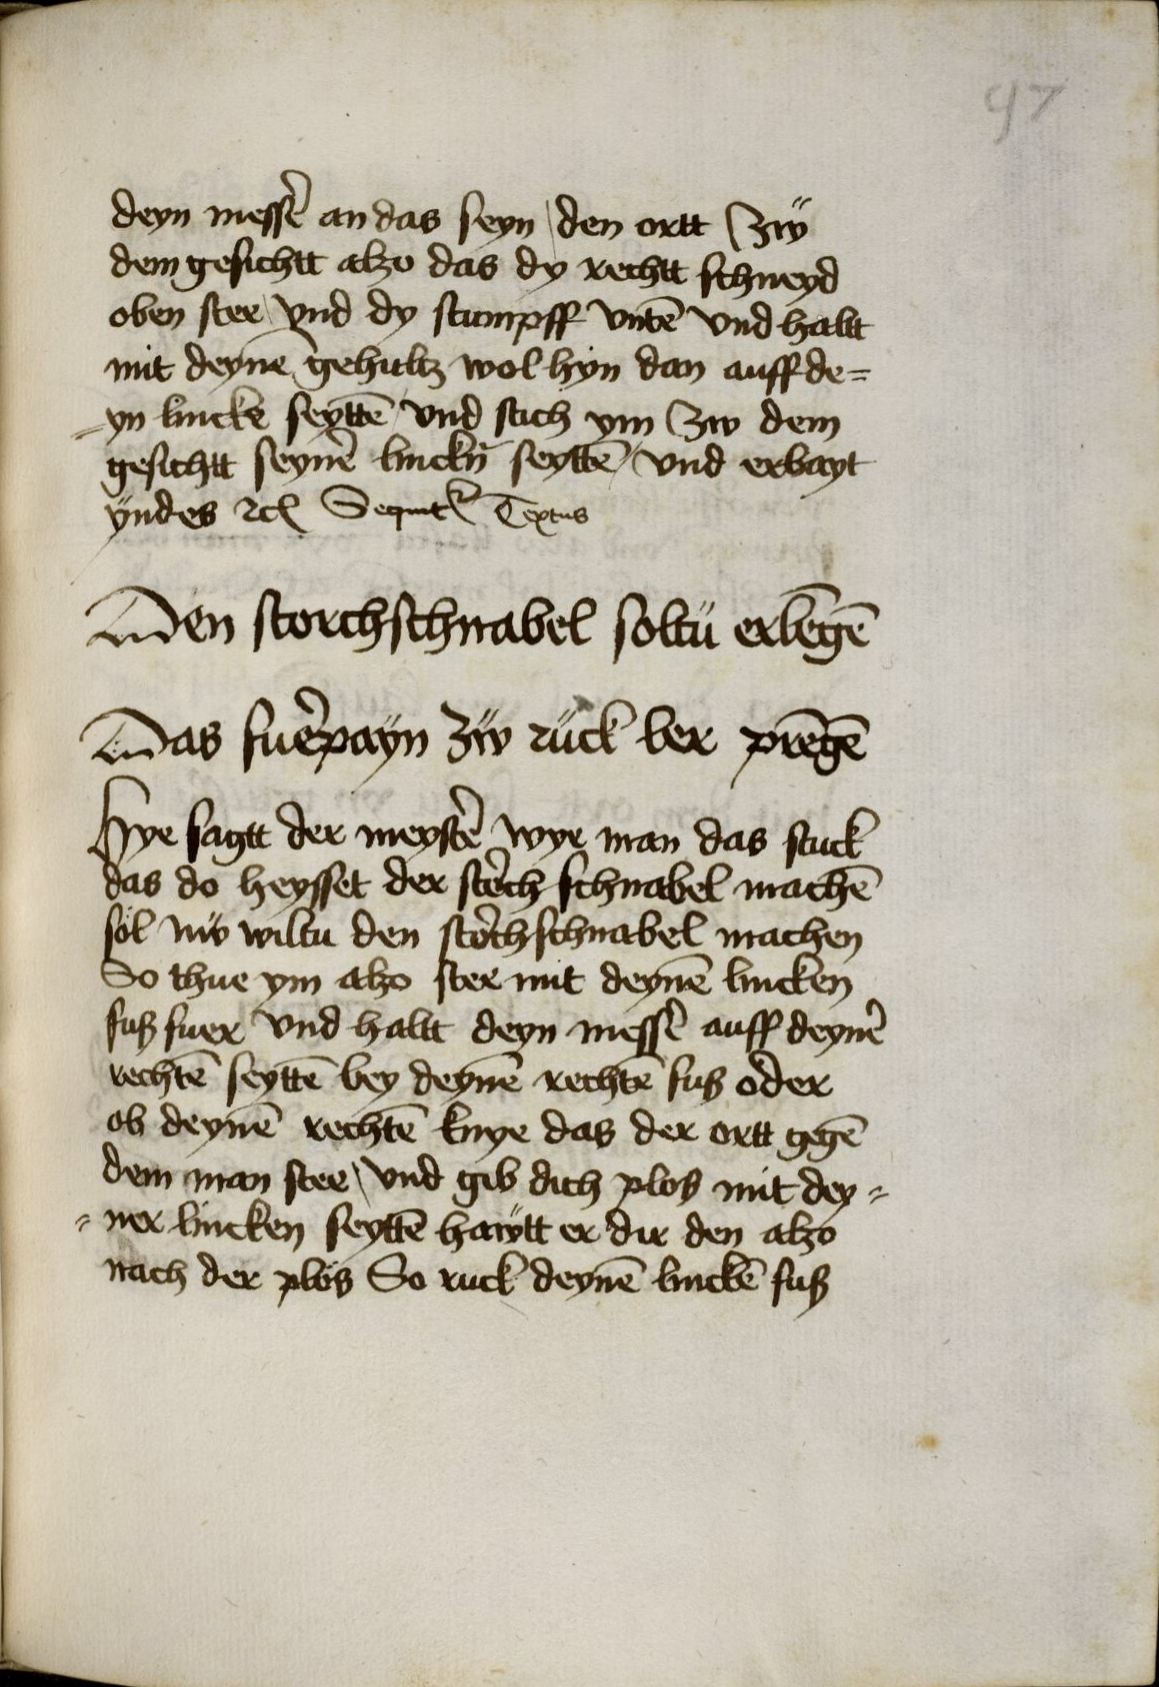 97
deyn messẽ an das seyn / den ortt Zẅ
dem gesichtt alzo das dy rechtt schneyd
oben stee / vnd dy stumpff vntē vnd haltt
mit deynē gehultz wol hyn dan auff de=
=yn lincke seyttē / vnd stich ym Zw dem
gesichtt seynẽ linckñ seyttē / vnd erbayt
ÿndes ⁊c̃ Sequitr Textus
Den storchschnabel soltü erlēgē
Das fuẽpayn Zẅ rück ler prēgē
Hye sagtt der meystẽ wye man das stuck
das do heysset der stẽch schnabel machē
sol nẅ wiltu den stẽchschnabel machen
So thue ym alzo stee mit deynē lincken
fuß fuer vnd haltt deyn messẽ auff deynẽ
rechtē seyttē bey deynē rechtē fuß oder
ob deynē rechtē knye das der ortt gegē
dem man stee / vnd gib dich plos mit dey=
=ner lincken seyttē hawtt er dir den alzo
nach der plös So ruck deynē linckē fuß